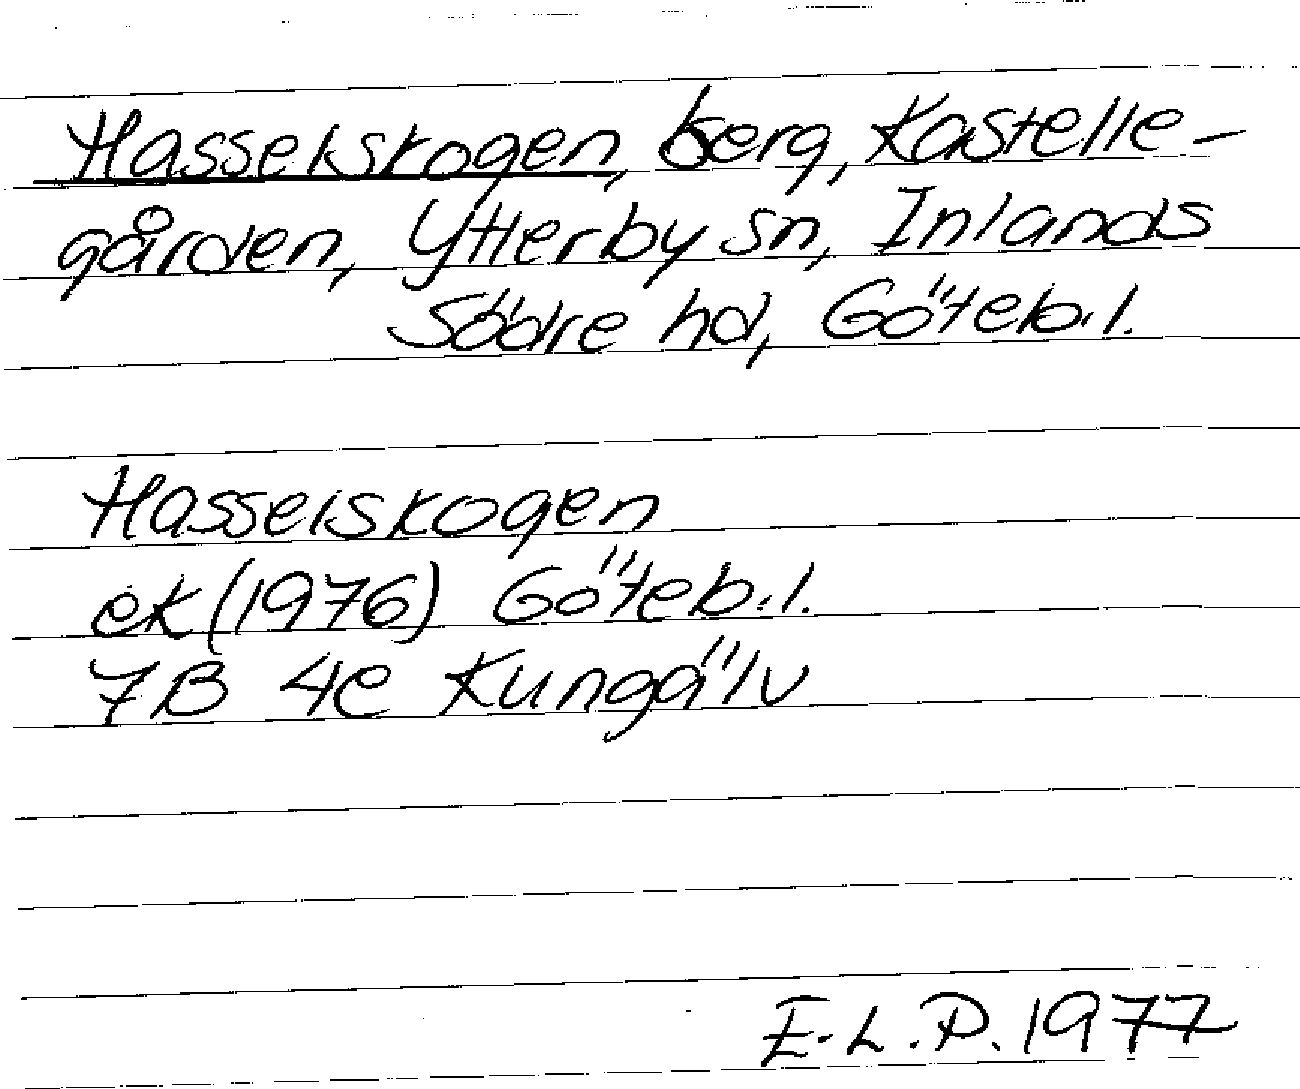 Hasselskogen, berg, Kastelle-
gården, Ytterby sn, Inlands
Södre hd, Göteb.l.
Hasselskogen
ek (1976) Göteb.l.
7B 4e Kungälv
E.L.P. 1977